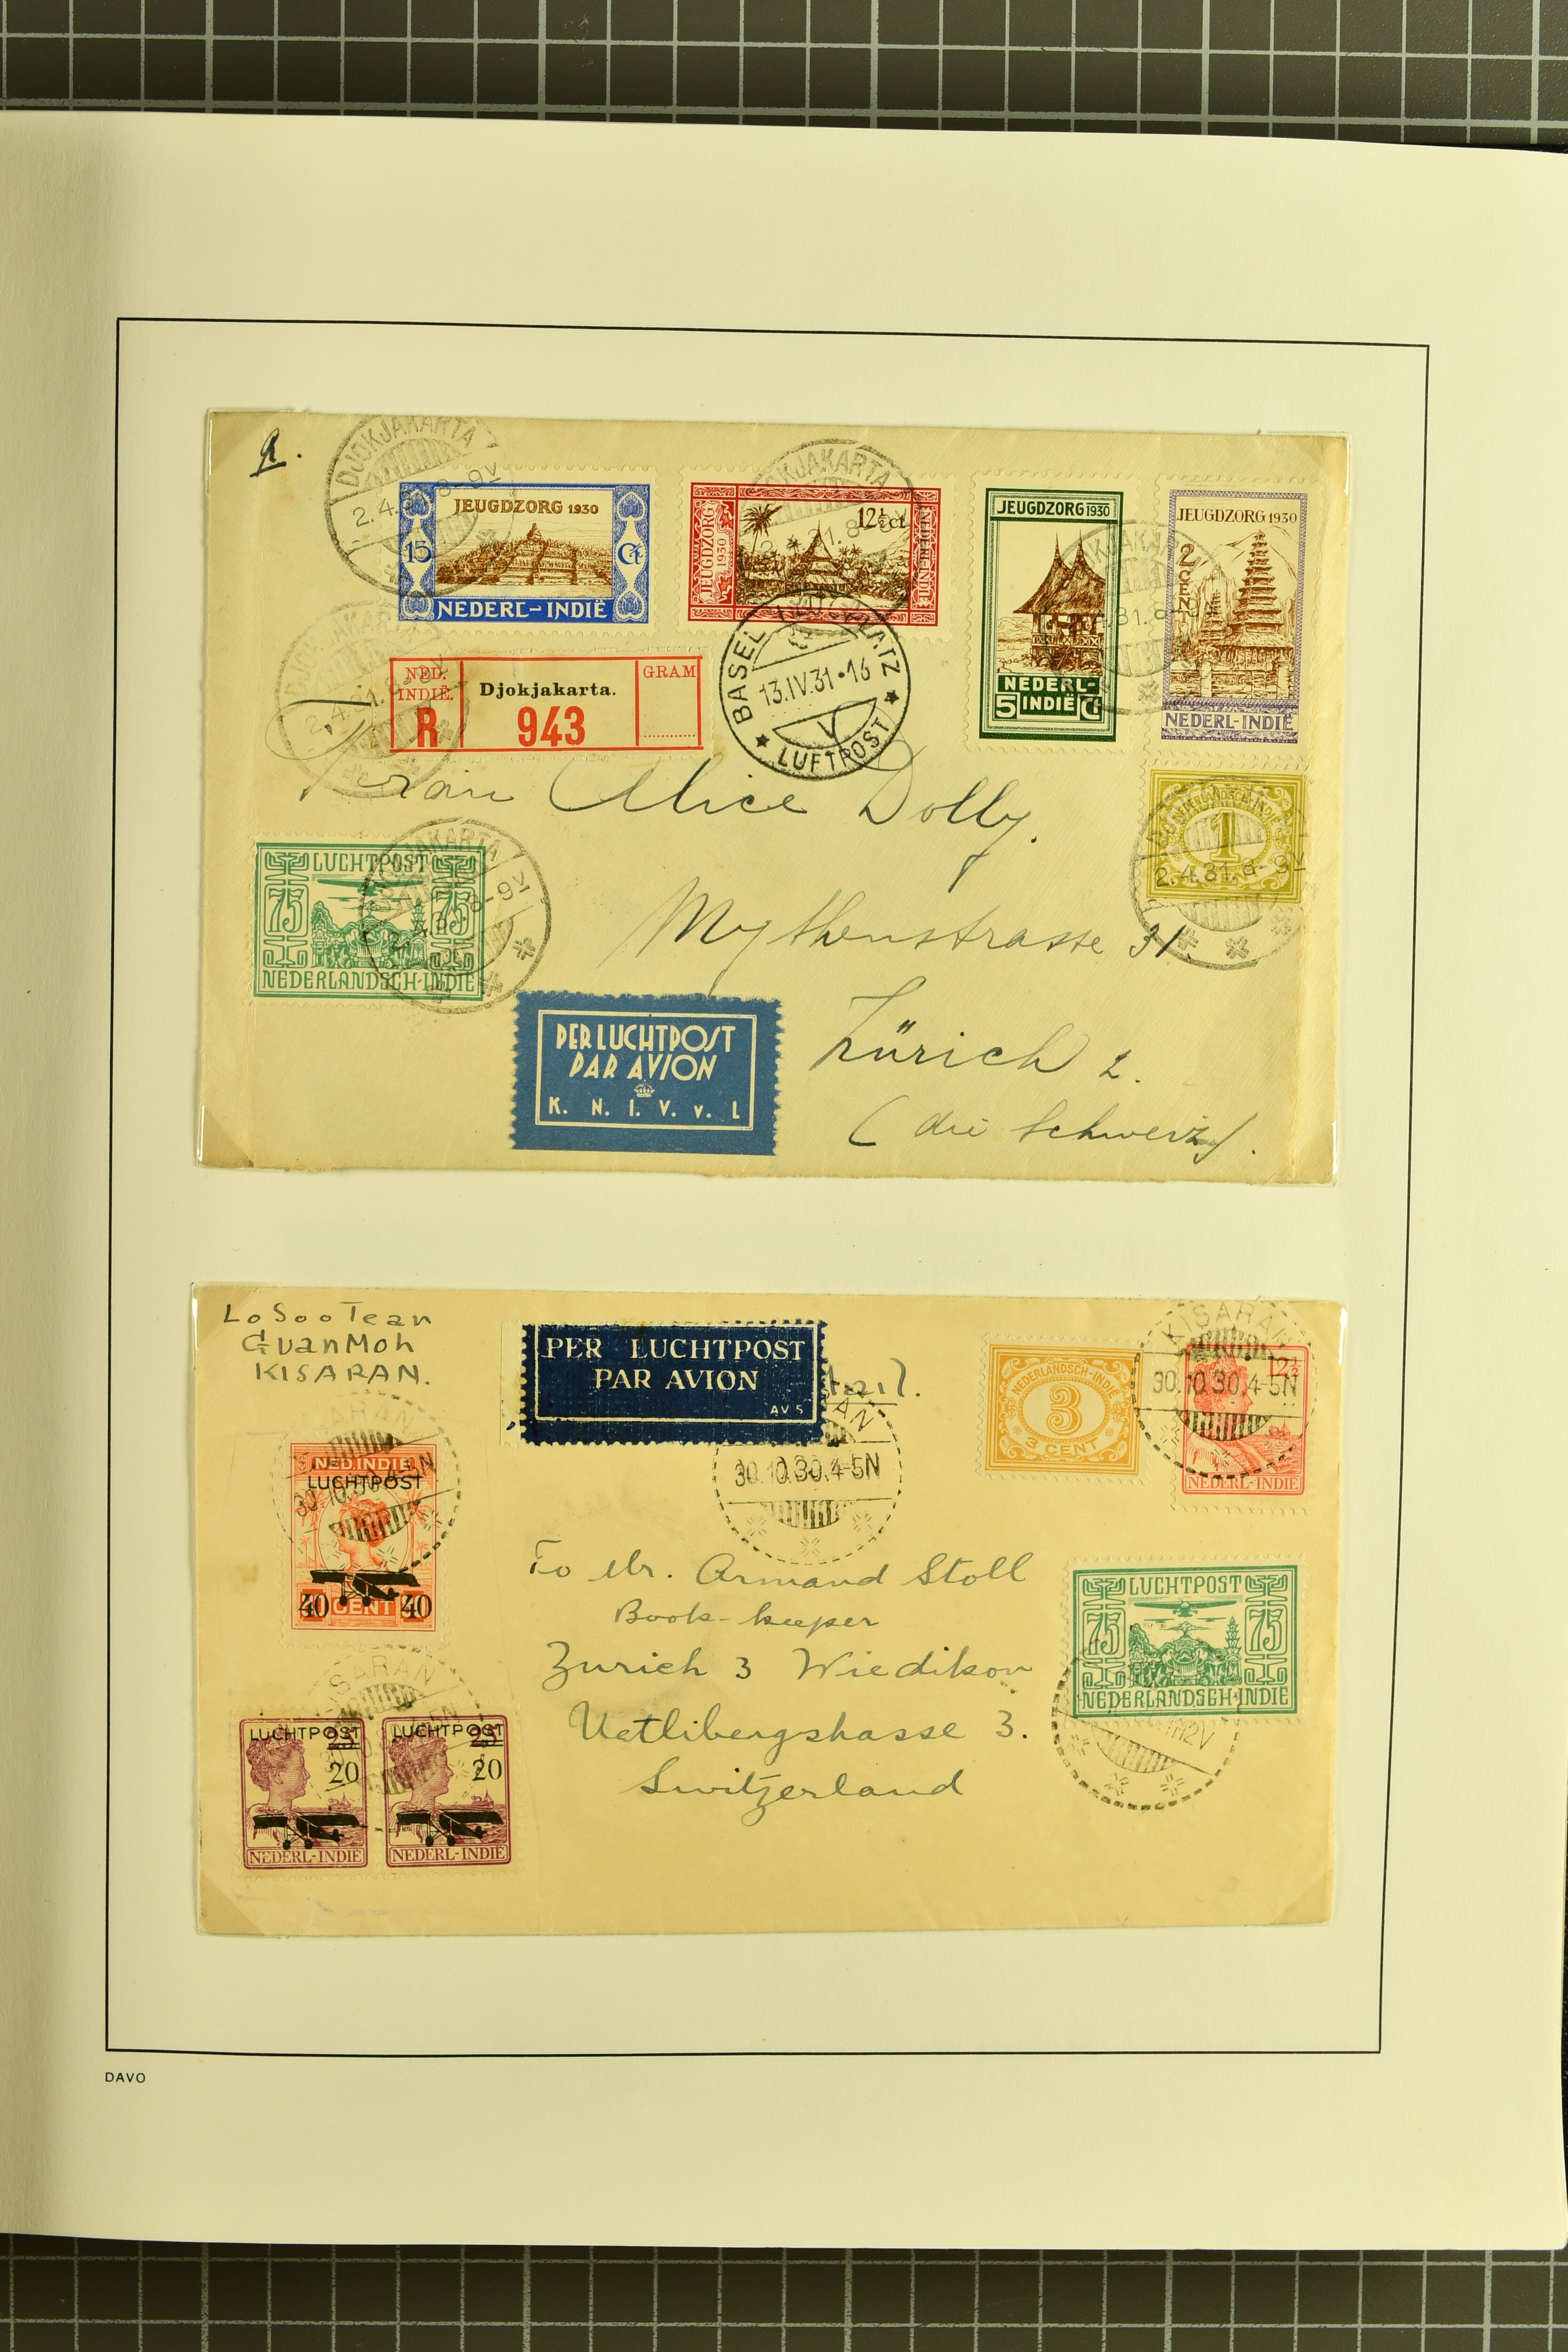 R.
DJOKJAKARTA
2.4.31.8-9V
JEUGDZORG 1930
15 Ct
NEDERL-INDIË
JEUGDZORG 1930
12½ ct
NEDERL-INDIË
JEUGDZORG 1930
NEDERL-
5 INDIË Ct
JEUGDZORG 1930
2 CENT
NEDERL-INDIË
NED. INDIË.
R
Djokjakarta.
943
GRAM
BASEL
13.IV.31·16
V
LUFTPOST
Alice Dolly.
NEDERLANDSCH-INDIË
1
2.4.31.8-9V
LUCHTPOST
75 75
NEDERLANDSCH-INDIË
DJOKJAKARTA
Mythenstrasse 31.
PER LUCHTPOST
PAR AVION
K. N. I. L. V. v. L
Zürich 2.
(die Schweiz).
Lo Soo Tean
Guan Moh
KISARAN.
PER LUCHTPOST
PAR AVION
AV 5
NEDERLANDSCH-INDIË
3
3 CENT
KISARAN
30.10.30.4-5N
12½
NEDERL-INDIË
30.10.30.4-5N
NED.INDIE
LUCHTPOST
40 CENT 40
To Mr. Armand Stoll
Book-keeper
Zurich 3 Wiedikon
Uetlibergstrasse 3.
Switzerland
LUCHTPOST
75 75
NEDERLANDSCH-INDIE
LUCHTPOST
25
20
NEDERL-INDIË
LUCHTPOST
25
20
NEDERL-INDIË
DAVO